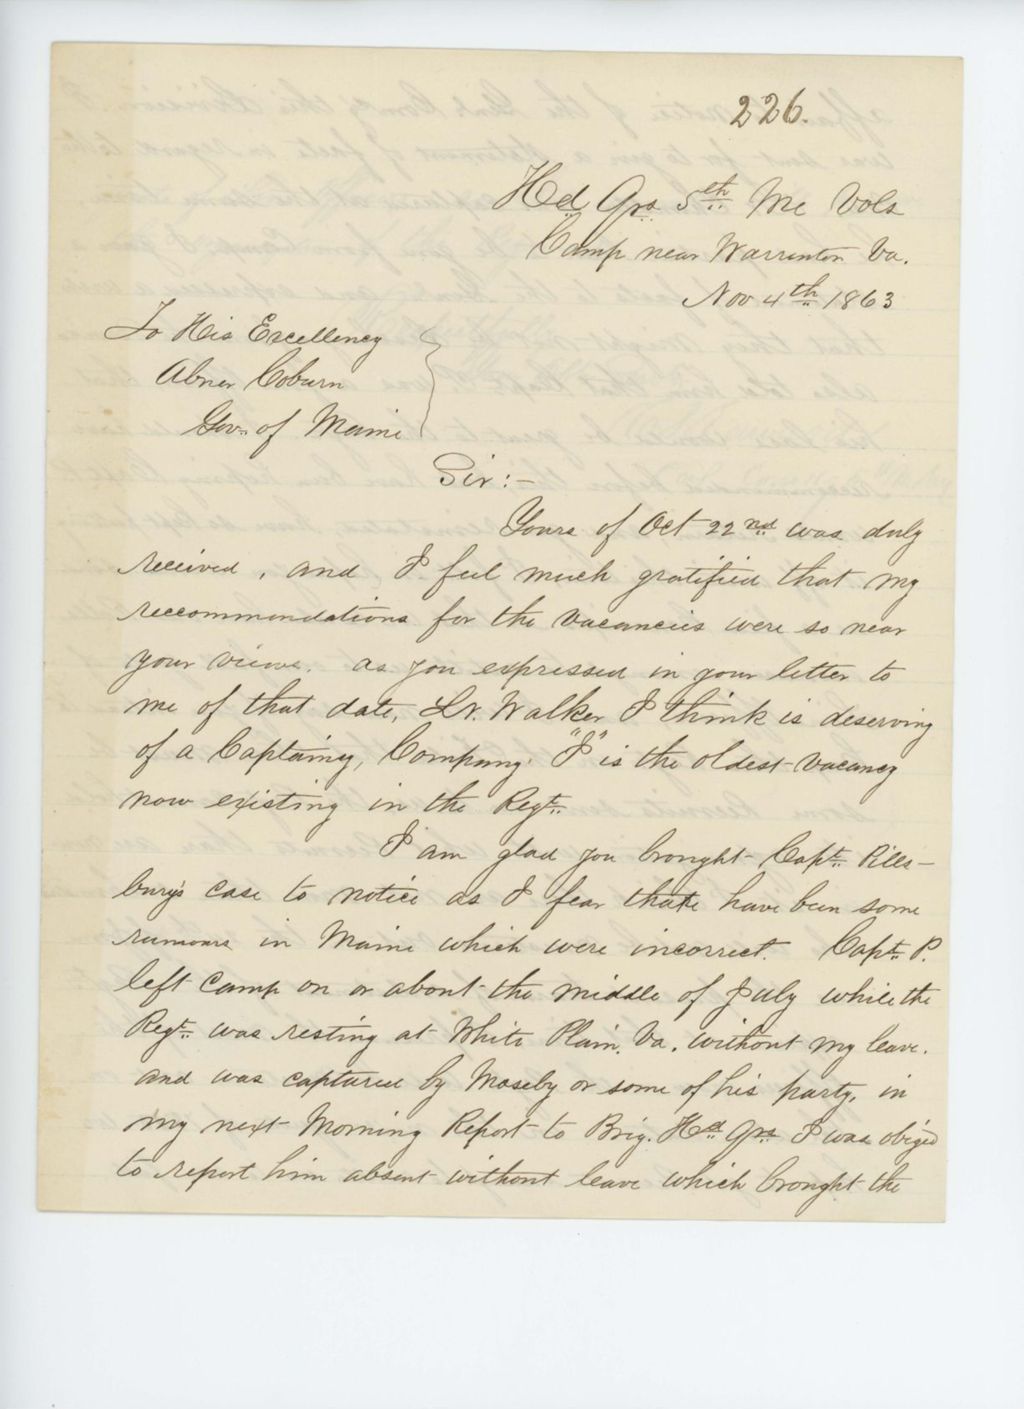 226.
Hd Qrs 5th Me Vols
Camp near Warrenton Va.
Nov 4th 1863
To His Excellency
Abner Coburn
Gov. of Maine
Sir:-
Yours of Oct 22nd was duly
received, and I feel much gratified that my
reccommendations for the vacancies were so near
your views, as you expressed in your letter to
me of that date, Lt. Walker I think is deserving
of a Captaincy, Company "I" is the oldest vacancy
now existing in the Regt.
I am glad you brought Capt. Pills-
bury's case to notice as I fear thate have been some
rumours in Maine which were incorrect. Capt. P.
left Camp on or about the middle of July while the
Regt. was resting at White Plain, Va. without my leave.
and was captured by Moseby or some of his party, in
my next Morning Report to Brig. Hd Qrs I was obiged
to report him absent without leave which brought the